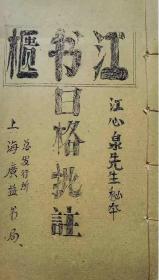 江书櫃
日格批註
江心泉先生秘本
总發行所
上海廣益书局